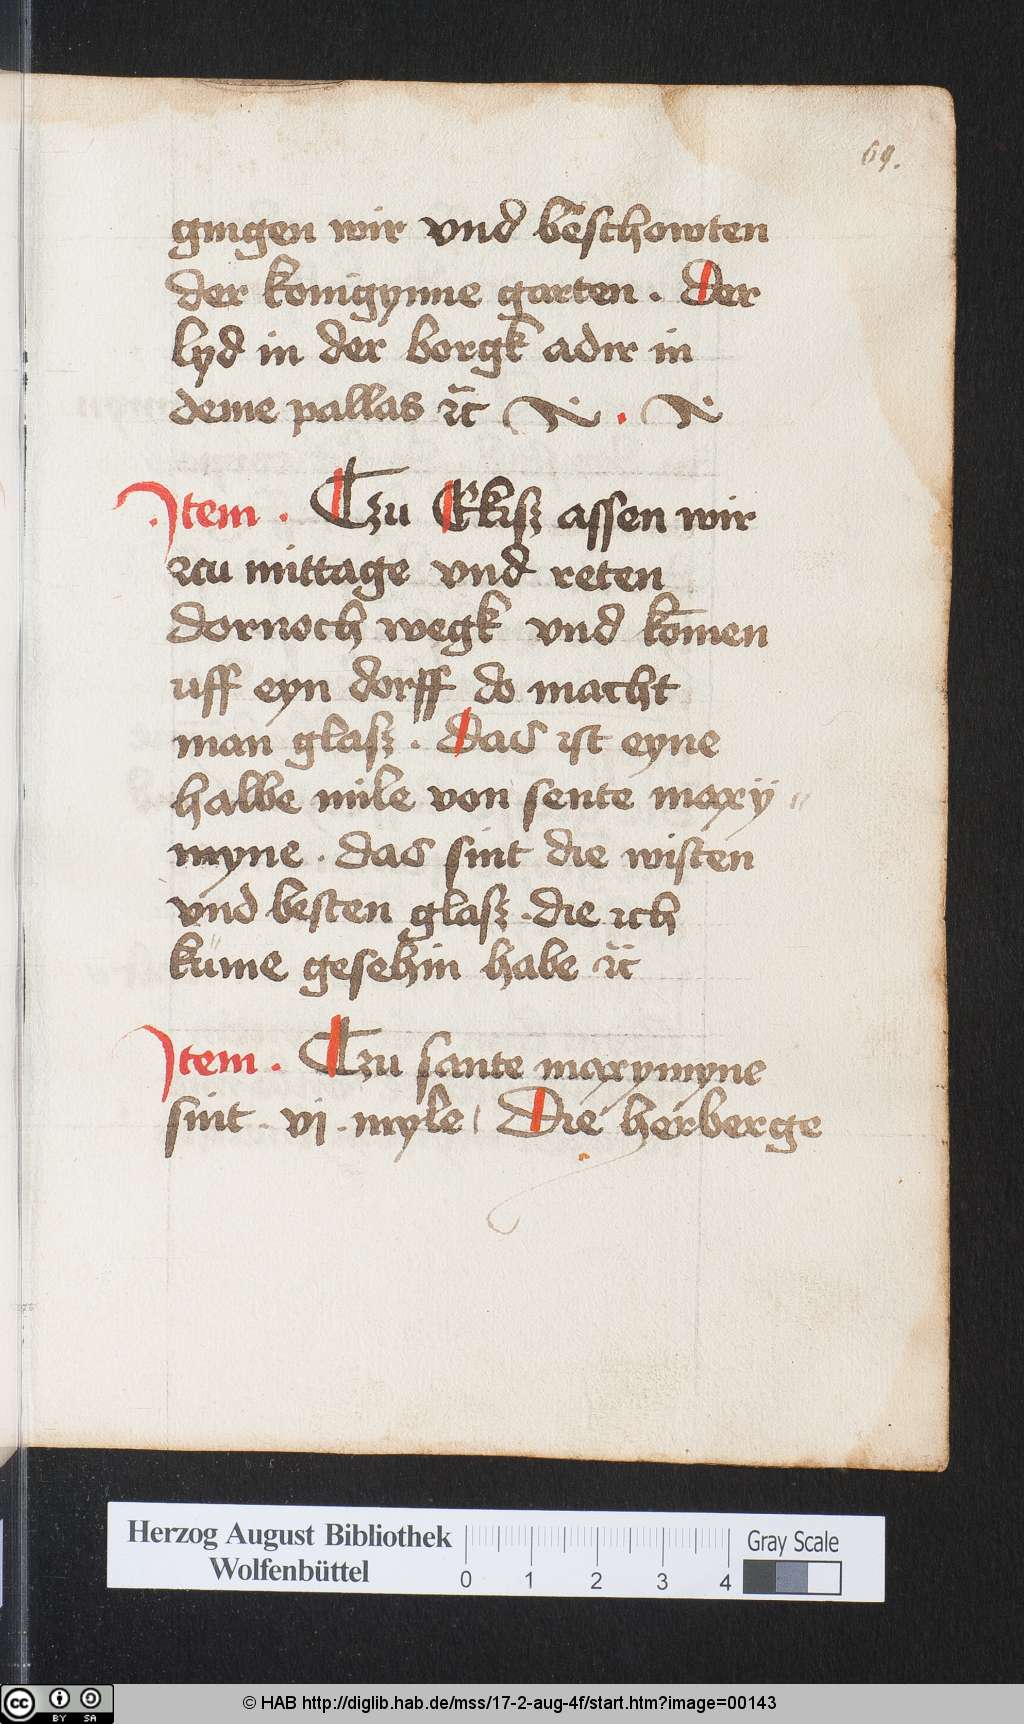 69.
gingen wir vnd beschowten
der konigynne garten . Der
lyd in der borgk adir in
deme pallas ꝛc̃
Item . Czu Erkisz assen wir
zcu mittage vnd reten
dornoch wegk vnd kom̄en
uff eyn dorff do macht
man glasz . Das ist eyne
halbe mile von sente maxÿ〃
myne . das sint die wisten
vnd besten glasz . die ich
kūme gesehin habe ꝛc̃
Item . Czu sante maxymyne
sint . vi . myle | Die herberge
Herzog August Bibliothek
Wolfenbüttel
0 1 2 3 4
Gray Scale
cc BY SA
© HAB http://diglib.hab.de/mss/17-2-aug-4f/start.htm?image=00143